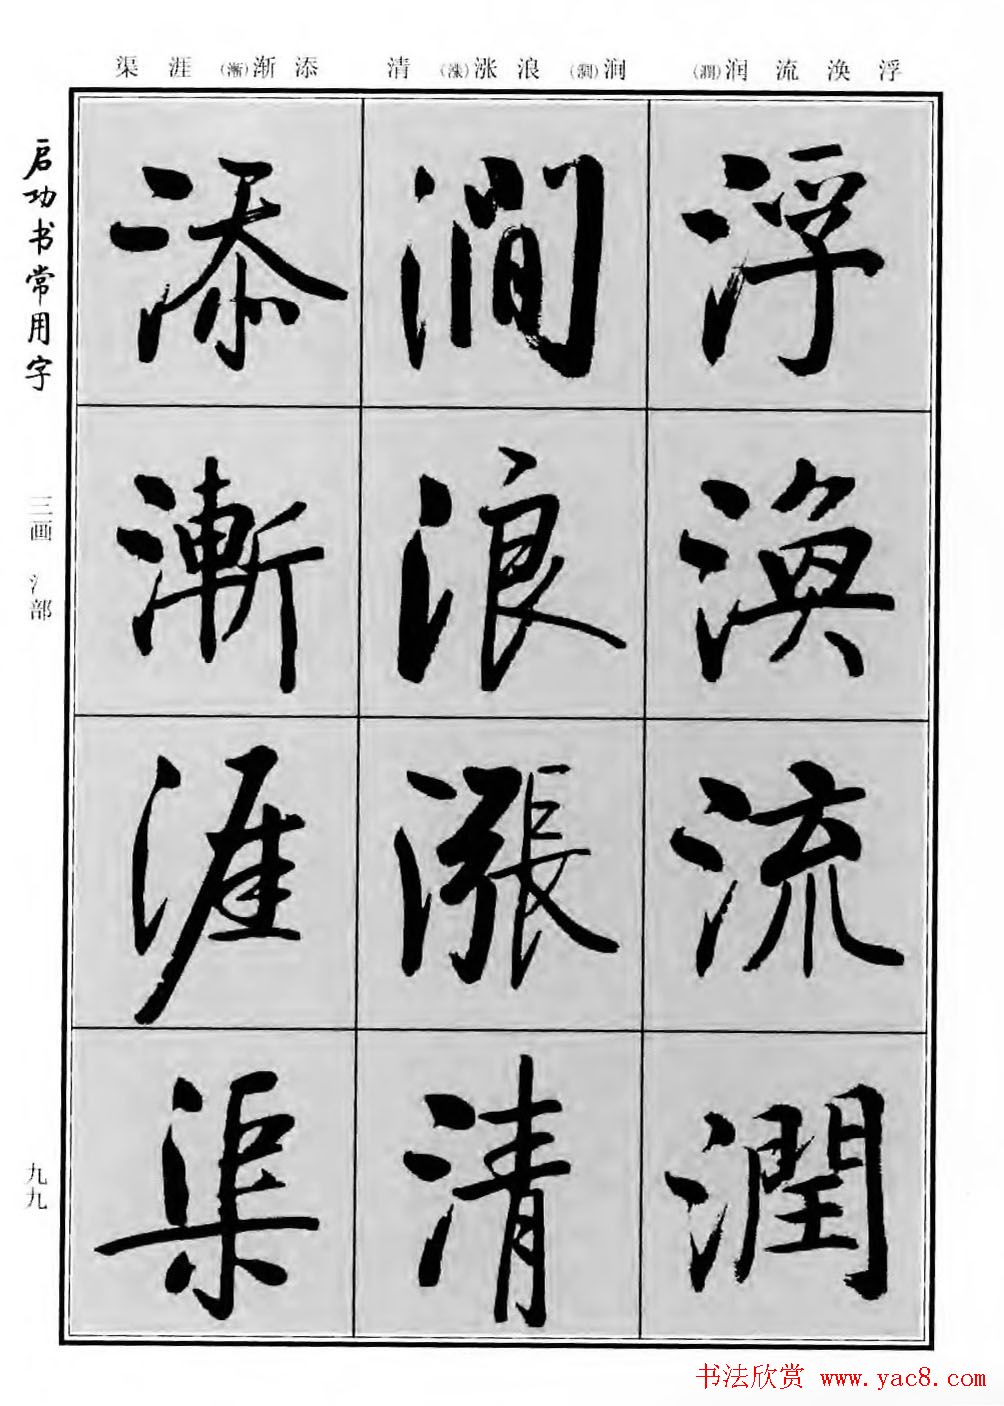 浮 涣 流 润(潤)
涧(澗) 浪 涨(漲) 清
添 渐(漸) 涯 渠
浮
渙
流
潤
澗
浪
漲
清
添
漸
涯
渠
启功书常用字
三画 氵部
九九
书法欣赏 www.yac8.com